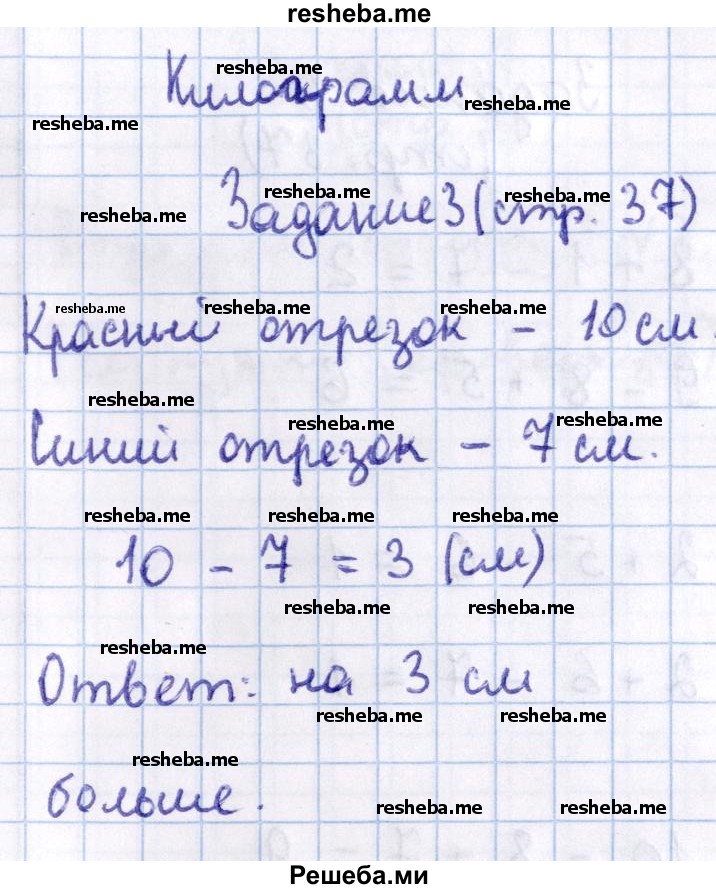 resheba.me
Килограмм
resheba.me
resheba.me
resheba.me
Задание 3 (стр. 37)
resheba.me
resheba.me
resheba.me
Красный отрезок – 10 см.
resheba.me
resheba.me
resheba.me
Синий отрезок – 7 см.
resheba.me
resheba.me
resheba.me
10 – 7 = 3 (см)
resheba.me
resheba.me
resheba.me
Ответ: на 3 см
resheba.me
resheba.me
resheba.me
resheba.me
resheba.me
больше.
resheba.me
resheba.me
resheba.me
Решеба.ми